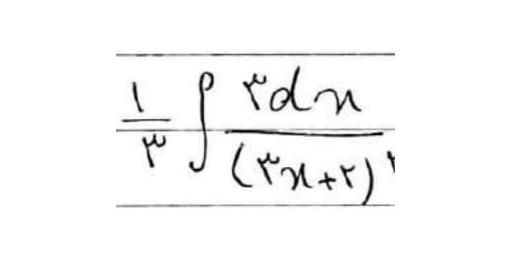 ۱/۳ ∫ ۳dx/(۳x+۲)